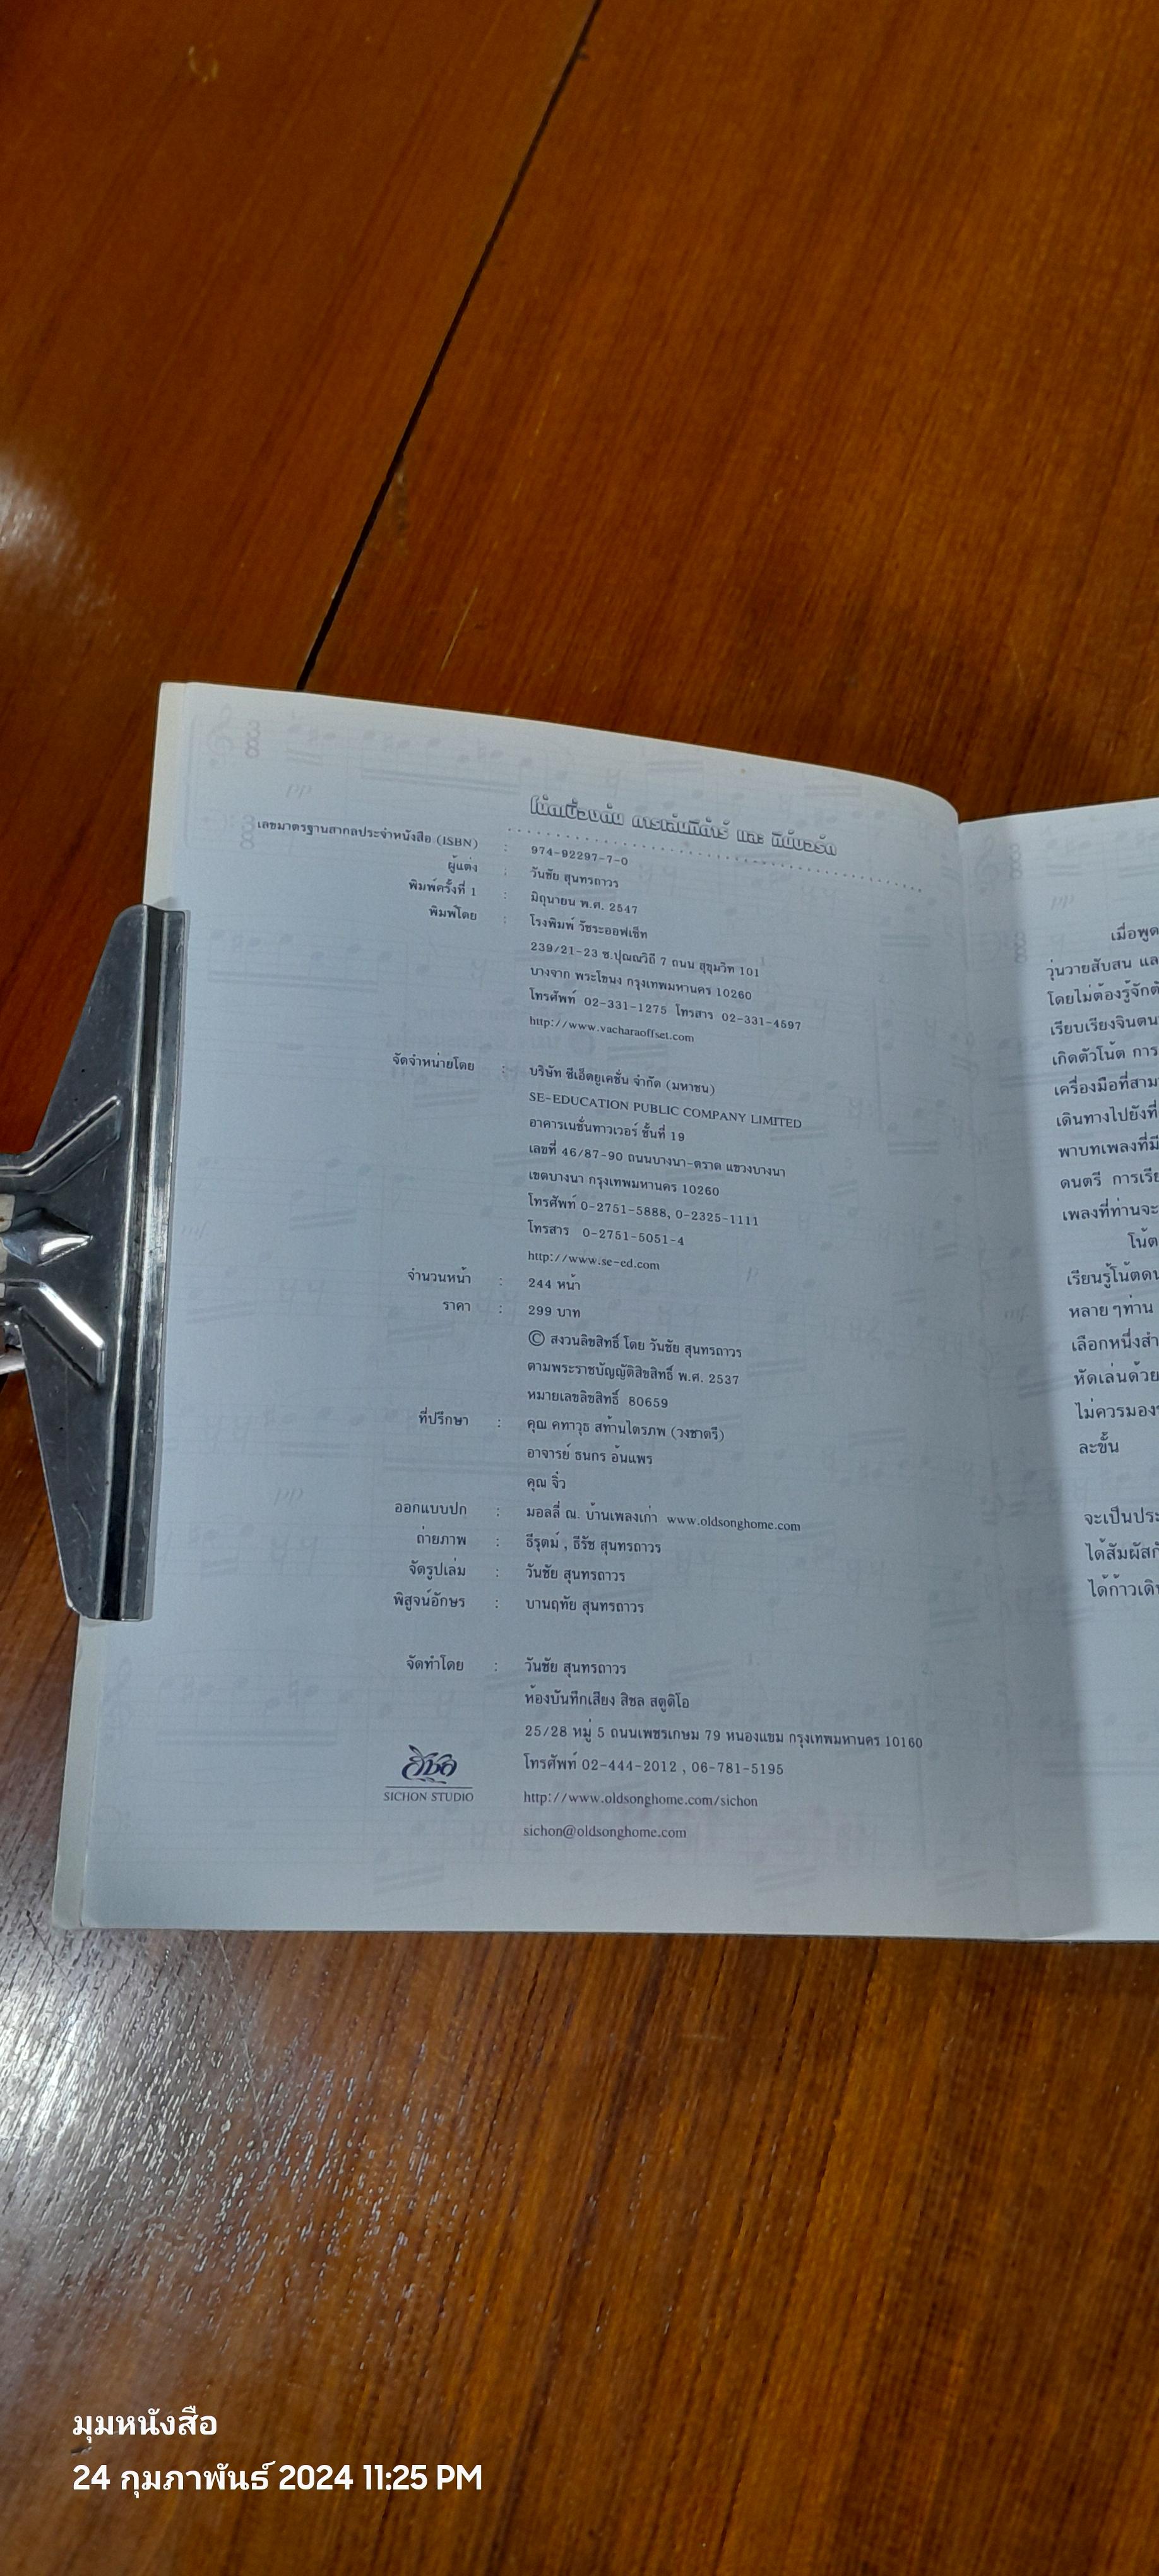 โน้ตเบื้องต้น การเล่นกีต้าร์ และ คีย์บอร์ด
เลขมาตรฐานสากลประจำหนังสือ (ISBN) : 974-92297-7-0
ผู้แต่ง : วันชัย สุนทรถาวร
พิมพ์ครั้งที่ 1 : มิถุนายน พ.ศ. 2547
พิมพ์โดย : โรงพิมพ์ วัชระออฟเซ็ท
239/21-23 ซ.ปุณณวิถี 7 ถนน สุขุมวิท 101
บางจาก พระโขนง กรุงเทพมหานคร 10260
โทรศัพท์ 02-331-1275 โทรสาร 02-331-4597
http://www.vacharaoffset.com
จัดจำหน่ายโดย : บริษัท ซีเอ็ดยูเคชั่น จำกัด (มหาชน)
SE-EDUCATION PUBLIC COMPANY LIMITED
อาคารเนชั่นทาวเวอร์ ชั้นที่ 19
เลขที่ 46/87-90 ถนนบางนา-ตราด แขวงบางนา
เขตบางนา กรุงเทพมหานคร 10260
โทรศัพท์ 0-2751-5888, 0-2325-1111
โทรสาร 0-2751-5051-4
http://www.se-ed.com
จำนวนหน้า : 244 หน้า
ราคา : 299 บาท
© สงวนลิขสิทธิ์ โดย วันชัย สุนทรถาวร
ตามพระราชบัญญัติลิขสิทธิ์ พ.ศ. 2537
หมายเลขลิขสิทธิ์ 80659
ที่ปรึกษา : คุณ คทาวุธ สท้านไตรภพ (วงชาตรี)
อาจารย์ ธนกร อ้นแพร
คุณ จิ๋ว
ออกแบบปก : มอลลี่ ณ. บ้านเพลงเก่า www.oldsonghome.com
ถ่ายภาพ : ธีรุตม์ , ธีรัช สุนทรถาวร
จัดรูปเล่ม : วันชัย สุนทรถาวร
พิสูจน์อักษร : บานฤทัย สุนทรถาวร
จัดทำโดย : วันชัย สุนทรถาวร
ห้องบันทึกเสียง สิชล สตูดิโอ
25/28 หมู่ 5 ถนนเพชรเกษม 79 หนองแขม กรุงเทพมหานคร 10160
โทรศัพท์ 02-444-2012 , 06-781-5195
http://www.oldsonghome.com/sichon
sichon@oldsonghome.com
สิชล
SICHON STUDIO
เมื่อพูด
วุ่นวายสับสน แล
โดยไม่ต้องรู้จักตั
เรียบเรียงจินตน
เกิดตัวโน้ต การ
เครื่องมือที่สาม
เดินทางไปยังที่
พาบทเพลงที่มี
ดนตรี การเรีย
เพลงที่ท่านจะ
โน้ต
เรียนรู้โน้ตดน
หลายๆท่าน
เลือกหนึ่งสำ
หัดเล่นด้วย
ไม่ควรมอง
ละขั้น
จะเป็นประ
ได้สัมผัสก
ได้ก้าวเดิ
มุมหนังสือ
24 กุมภาพันธ์ 2024 11:25 PM